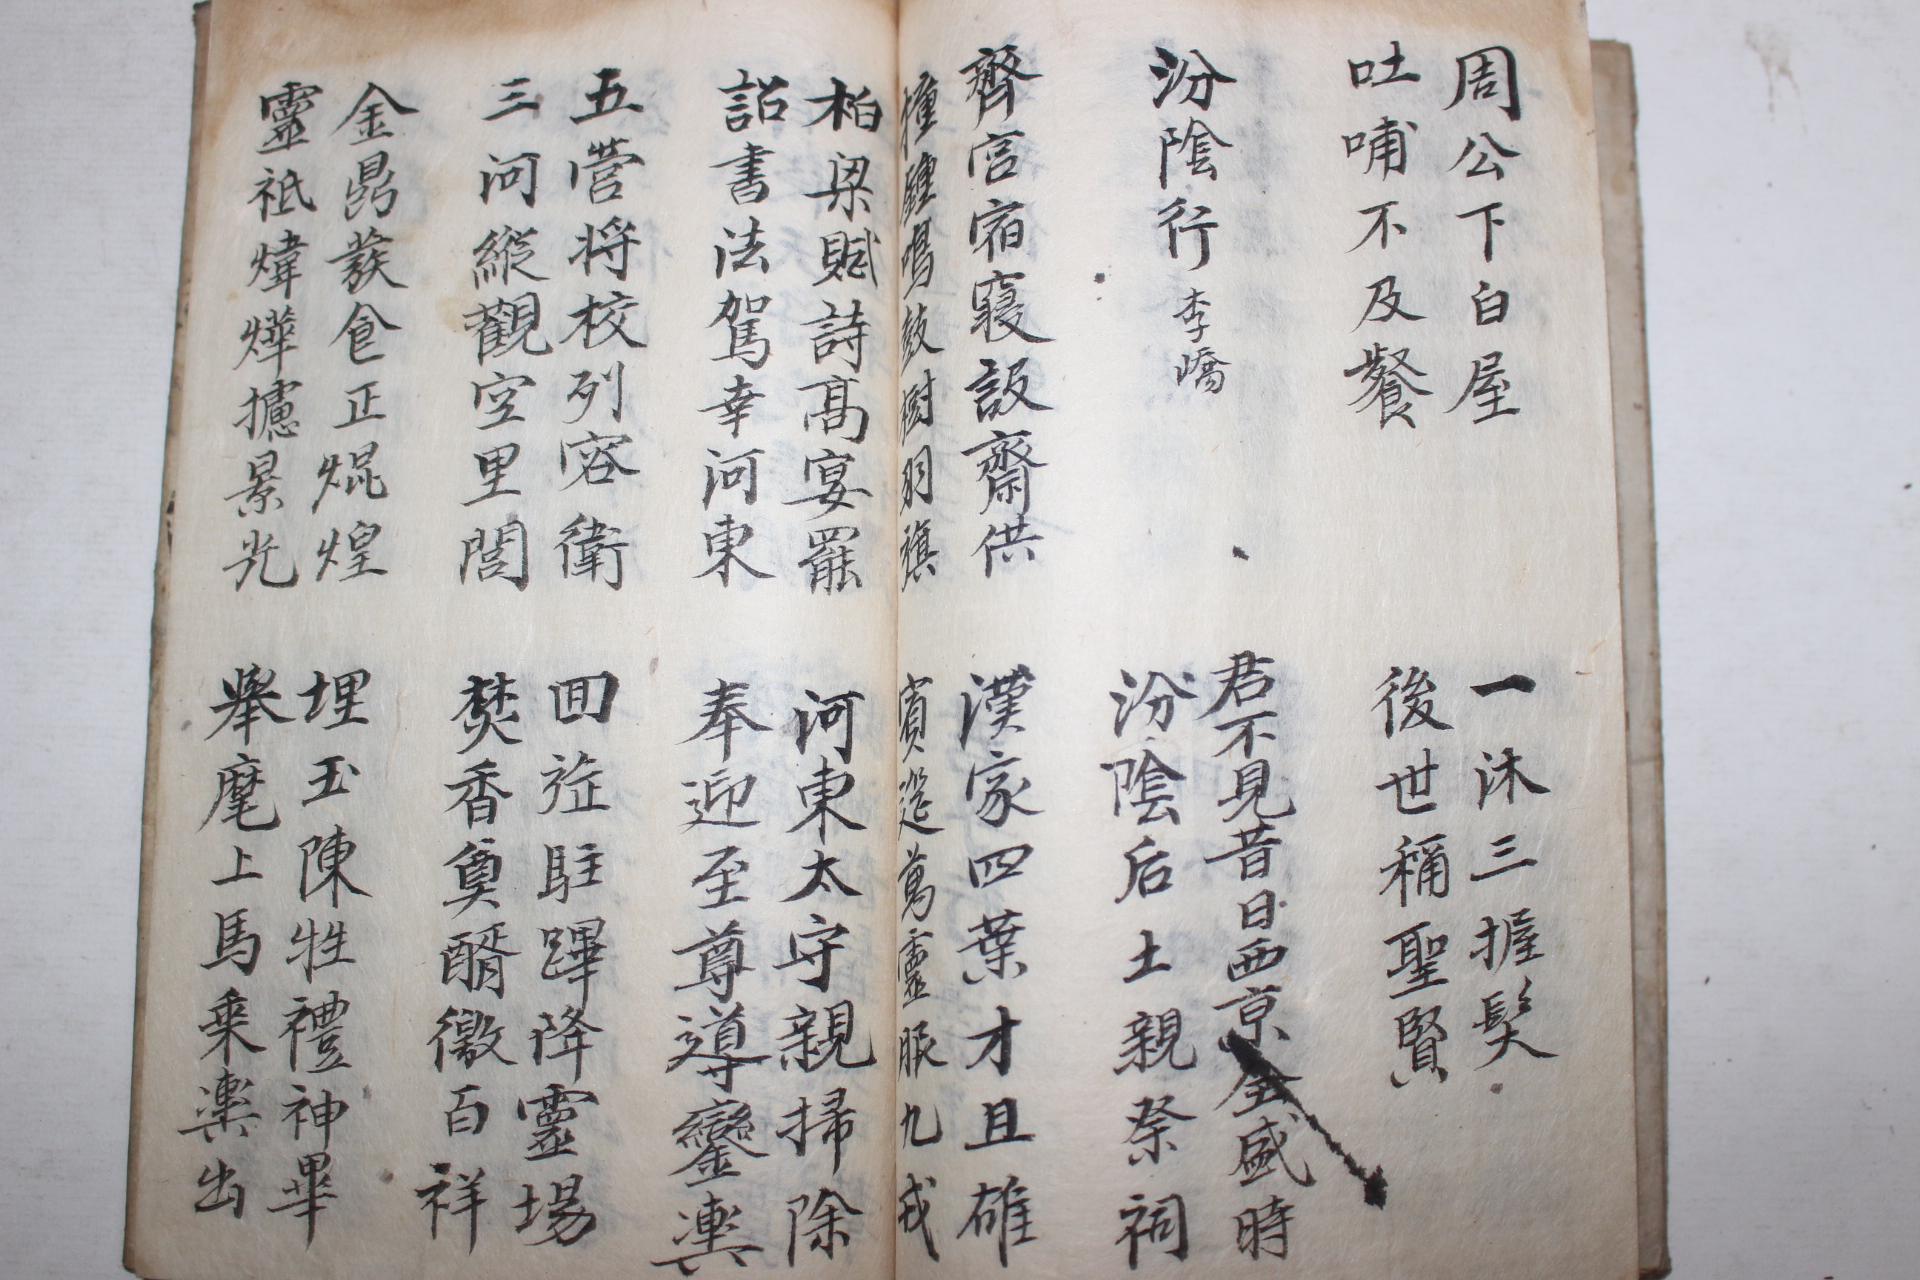 周公下白屋
吐哺不及餐
一沐三握髮
後世稱聖賢
汾陰行 李嶠
君不見昔日西京全盛時
汾陰后土親祭祠
齊宮宿寢設齋供
撞鍾鳴鼓樹羽旗
漢家四葉才且雄
賓筵萬靈服九戎
柏梁賦詩高宴罷
詔書法駕幸河東
河東太守親掃除
奉迎至尊導鑾輿
五營將校列容衛
三河縱觀空里閭
回旌駐蹕降靈場
焚香奠醑徼百祥
金鼎發食正焜煌
靈祇煒燁攄景光
埋玉陳牲禮神畢
舉麾上馬乘輿出